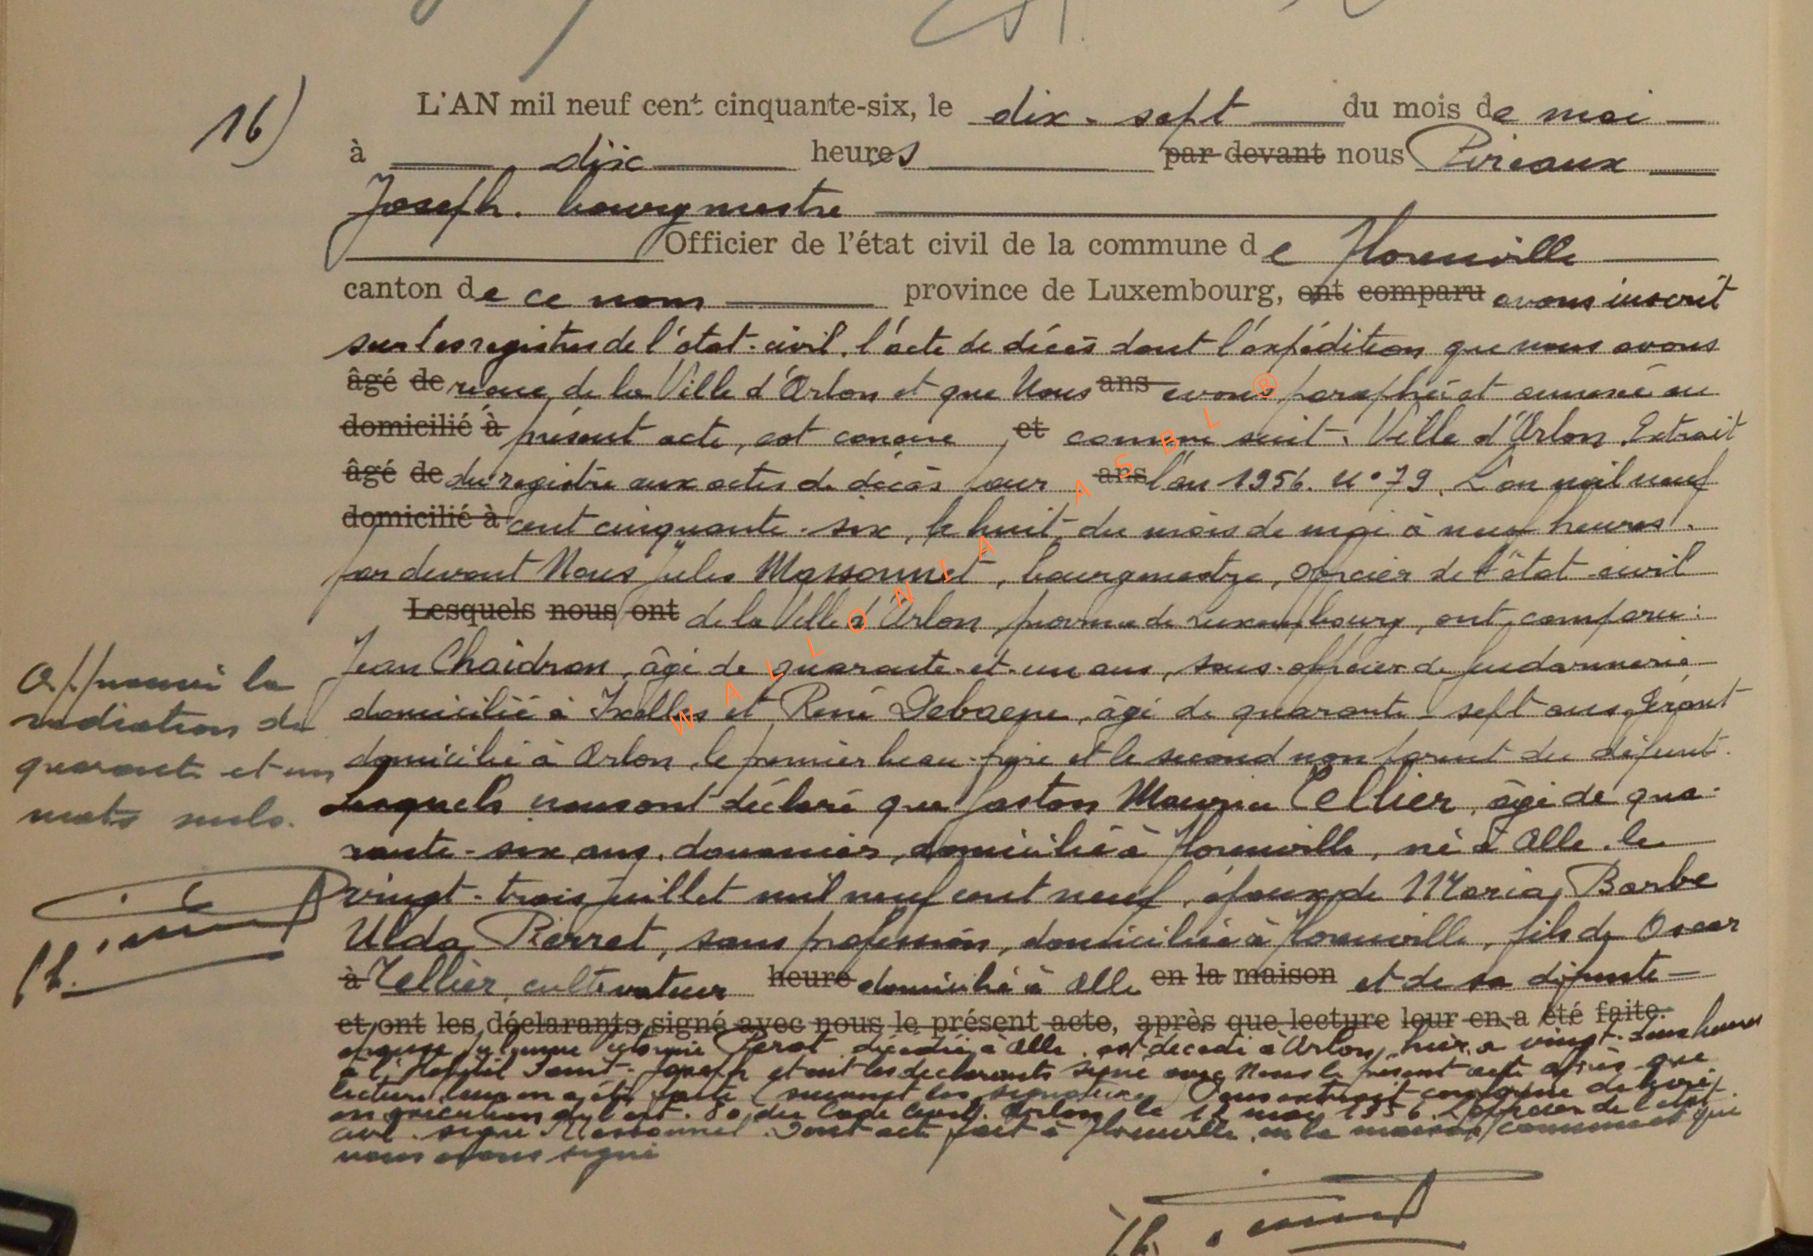 16)
L'AN mil neuf cent cinquante-six, le dix-sept du mois de mai
à dix heures par devant nous Pireaux
Joseph. bourgmestre
Officier de l'état civil de la commune de Florenville
canton de ce nom province de Luxembourg, ont comparu avons inscrit
sur les registres de l'état-civil, l'acte de décès dont l'expédition que nous avons
âgé de reçue de la Ville d'Arlon et que Nous ans avons paraphé et annexée au
domicilié à présent acte, est conçue et comme suit. Ville d'Arlon. Extrait
âgé de du registre aux actes de décès pour ans l'an 1956. N° 79. L'an mil neuf
domicilié à cent cinquante-six, le huit du mois de mai à neuf heures.
par devant Nous Jules Massonnet, bourgmestre, officier de l'état-civil
Lesquels nous ont de la Ville d'Arlon, province de Luxembourg, ont comparu:
Jean Chaidron, âgé de quarante-et-un ans, sous-officier de gendarmerie
domicilié à Ixelles et René Debaene, âgé de quarante-sept ans, gérant
domicilié à Arlon, le premier beau-frère et le second non parent du défunt.
Lesquels nous ont déclaré que Gaston Maurice Tellier, âgé de qua-
rante-six ans, douanier, domicilié à Florenville, né à Alle, le
vingt-trois juillet mil neuf cent neuf, époux de Maria Barbe
Ulda Pierret, sans profession, domiciliée à Florenville, fils de Oscar
à Tellier, cultivateur heure domicilié à Alle en la maison et de sa défunte
et ont les déclarants signé avec nous le présent acte, après que lecture leur en a été faite.
épouse Perot, décédée à Alle, est décédé à Arlon, hier à vingt-deux heures
à l'Hopital Saint-Joseph et ont les déclarants signé avec Nous le présent acte après que
lecture leur en a été faite (suivent les signatures) Pour extrait conforme délivré
en exécution de l'art. 80 du Code Civil. Arlon, le 12 mai 1956. L'officier de l'état
civil. signé Massonnet. Dont acte fait à Florenville en la maison communale que
nous avons signé
Approuvé la
radiation de
quarante et un
mots nuls.
WALLONIA ASBL ®